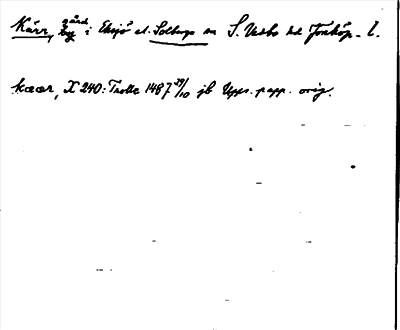 Kärr, gård by i Eksjö el. Solberga sn S. Vedbo hd Jönköp. l.
kæær, X 240: Trolle 1487 29/10 jb Upps. papp. orig.